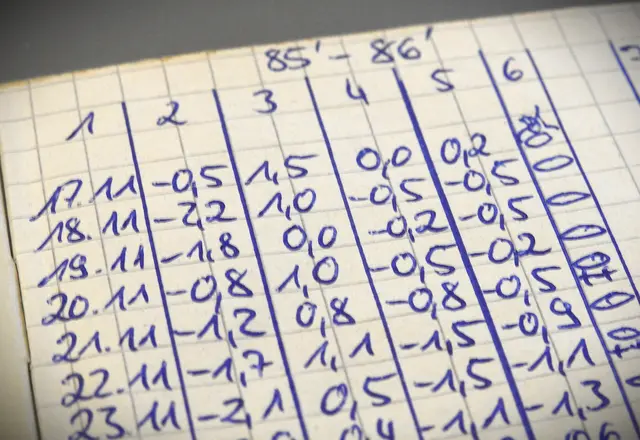 85' - 86'
1 2 3 4 5 6
17.11 -0,5 1,5 0,0 0,2
18.11 -2,2 1,0 -0,5 -0,5 0
19.11 -1,8 0,0 -0,2 -0,5 0
20.11 -0,8 1,0 -0,5 -0,2 0
21.11 -1,2 0,8 -0,8 -0,5
22.11 -1,7 1,1 -1,5 -0,9 0
23.11 -2,1 0,5 -1,5 -1,1
-1,1 -1,3